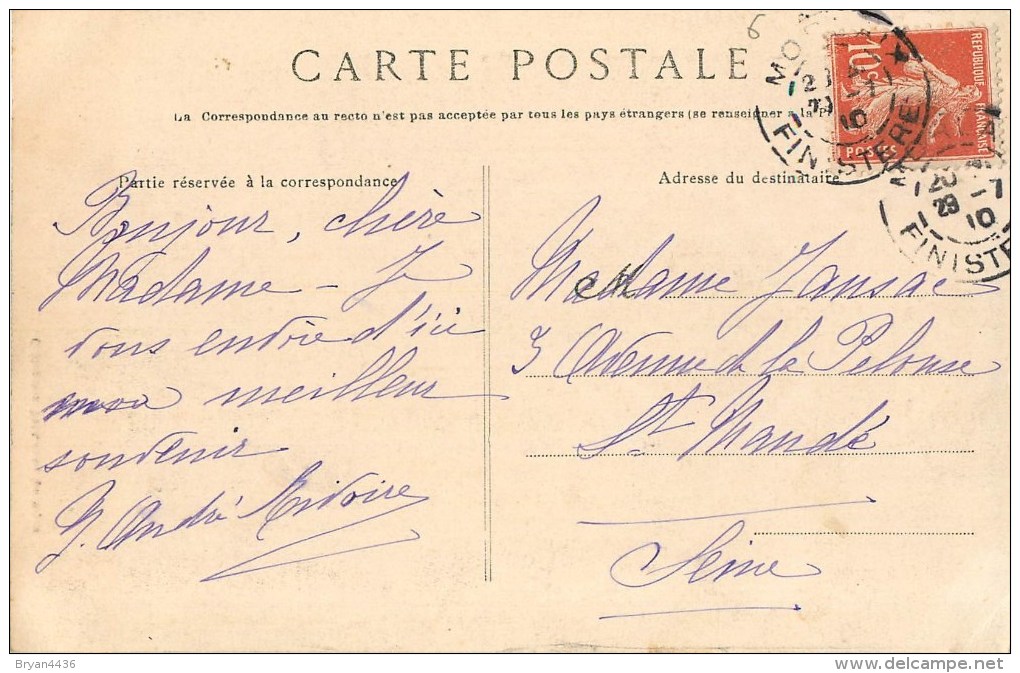 CARTE POSTALE
La Correspondance au recto n'est pas acceptée par tous les pays étrangers (se renseigner à la P
Partie réservée à la correspondance
Adresse du destinataire
Bonjour, chère
Madame - Je
vous envoie d'ici
mon meilleur
souvenir
André
Madame Jansac
3 Avenue de la Pelouse
St Mandé
Seine
REPUBLIQUE FRANÇAISE
10c
POSTES
FINISTERE
FINISTE
Bryan4436
delcampe.net